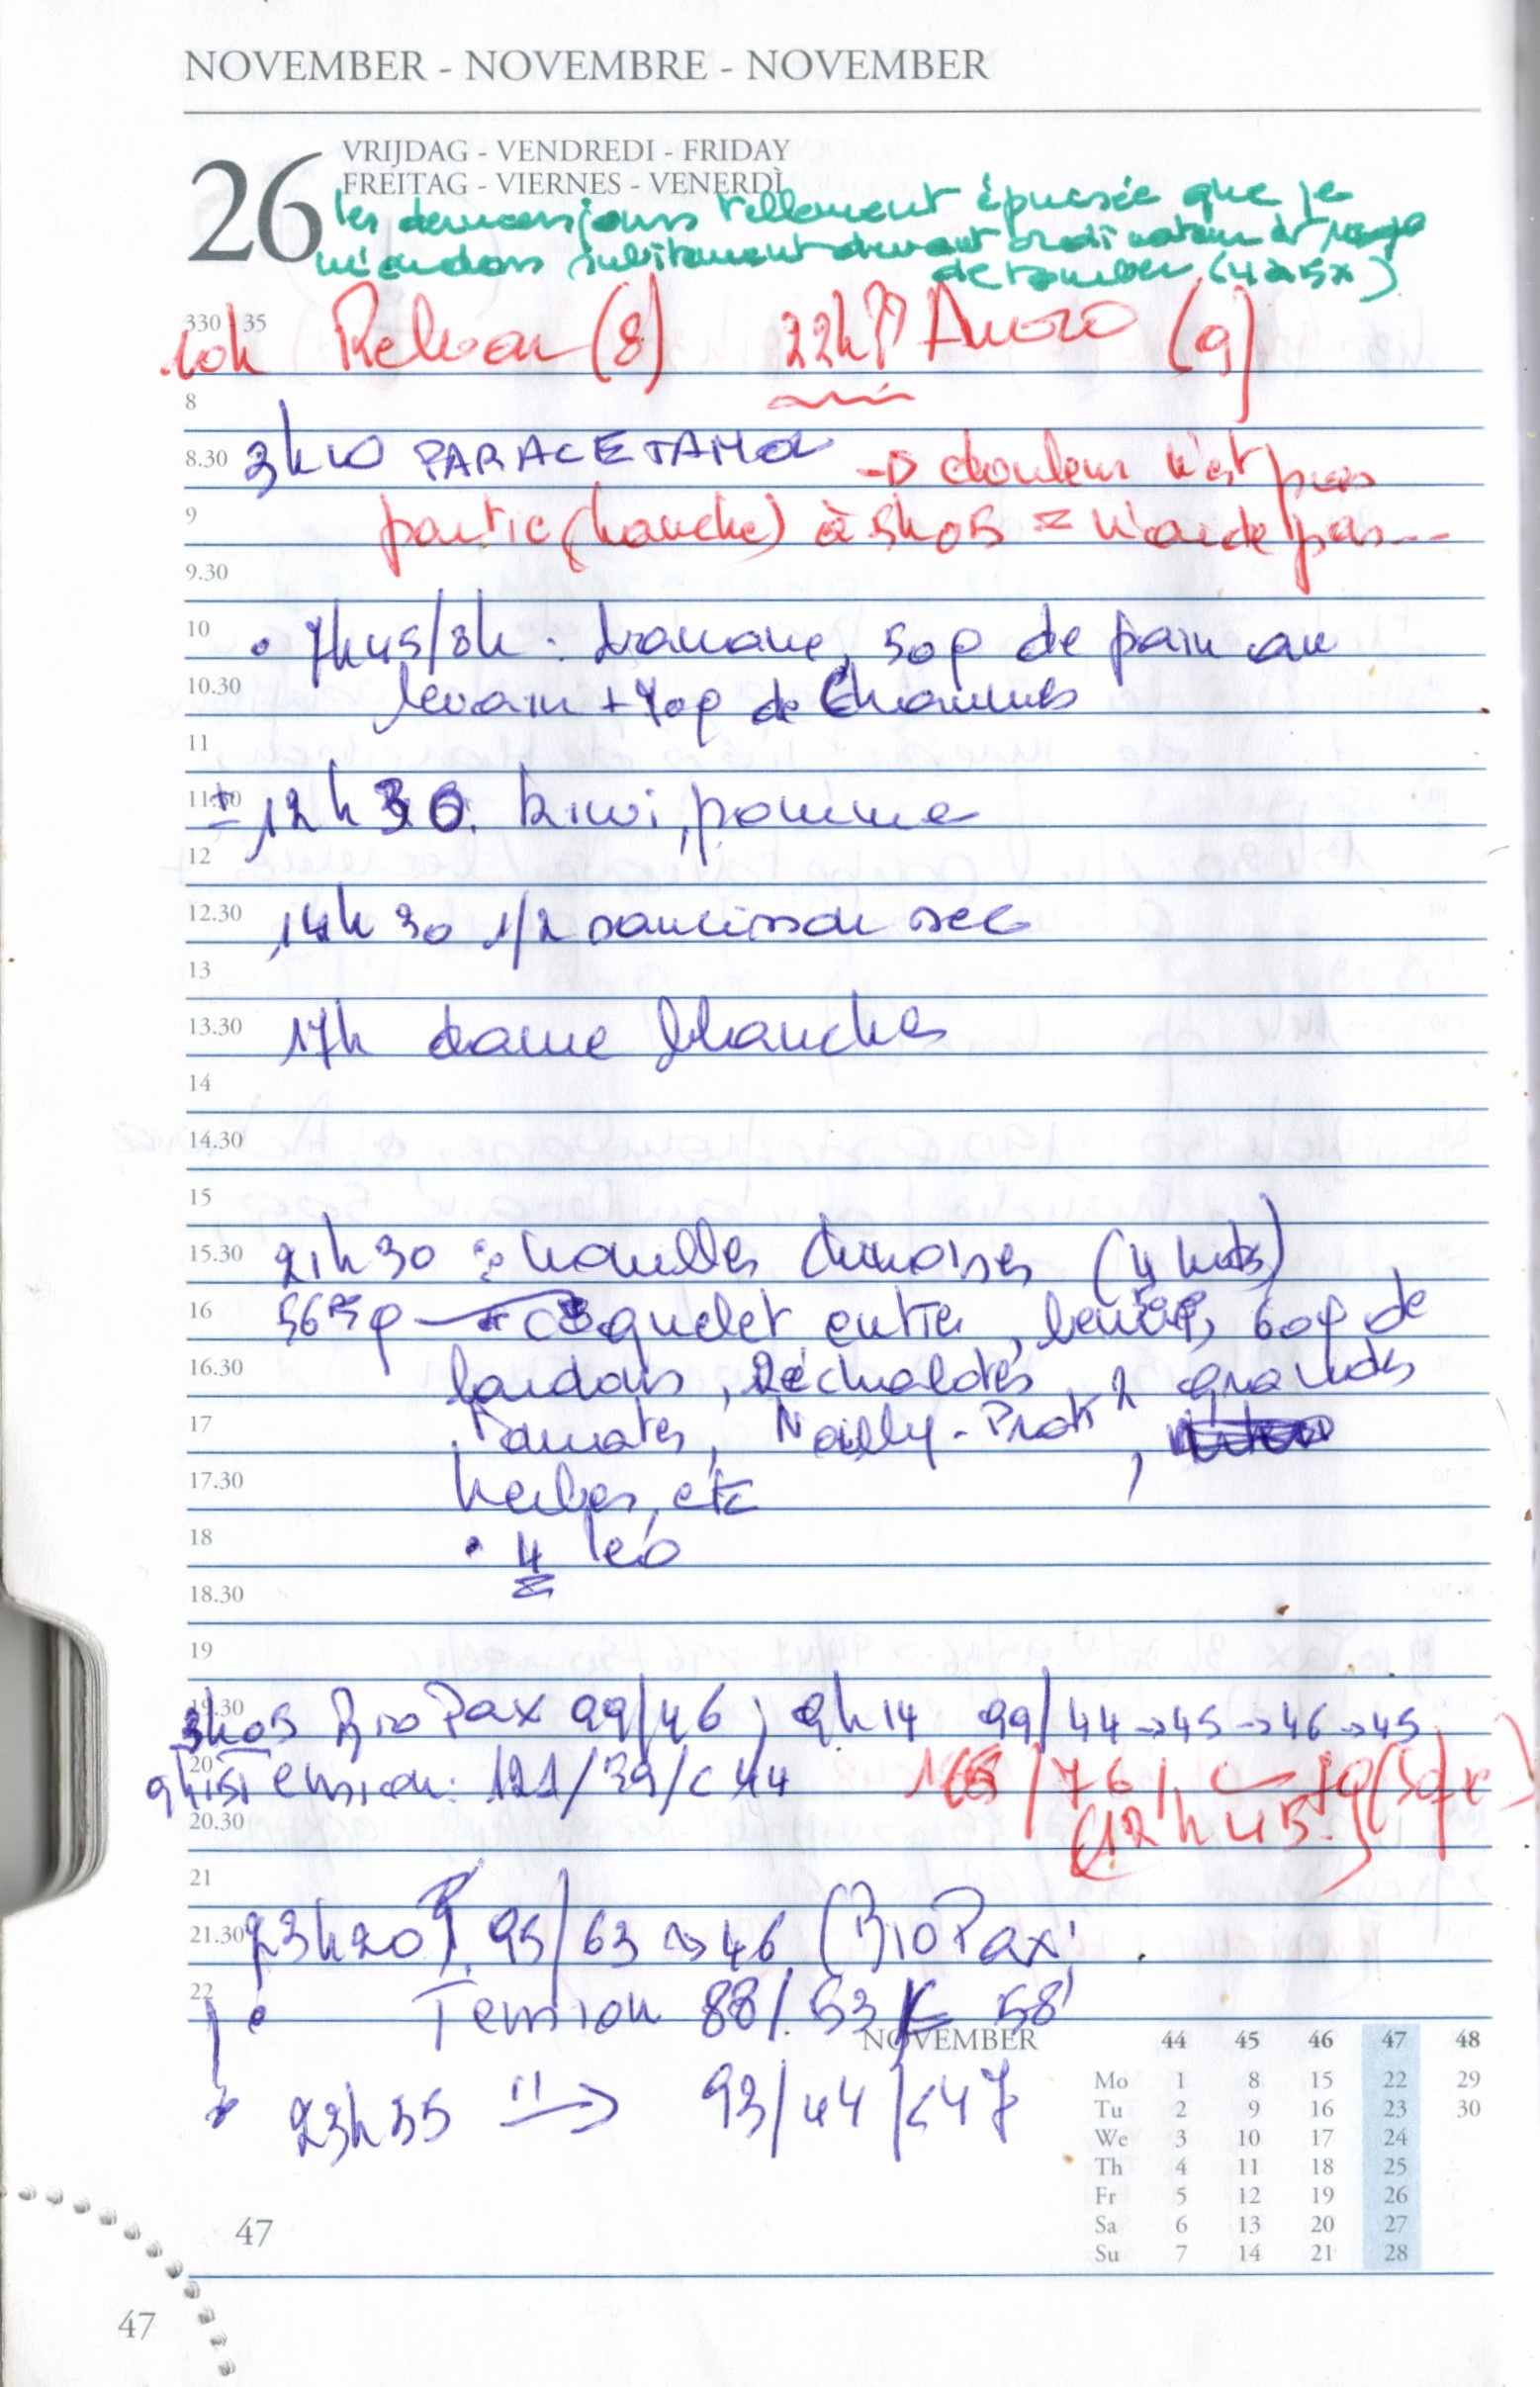 NOVEMBER - NOVEMBRE - NOVEMBER
26
VRIJDAG - VENDREDI - FRIDAY
FREITAG - VIERNES - VENERDÌ
les derniers jours tellement épuisée que je
m'endors subitement devant ordinateur et
de tomber (4 à 5x)
330 - 35
10h Relvar (8) 22h?? Anoro (9)
8
8.30 3h10 PARACETAMOL → douleur n'est pas
9 partie (hanche) à 5h05 = n'aide pas...
9.30
10 • 7h45/8h : banane, 50g de pain au
10.30 levain + 70g de
11
11.30 ± 12h30. kiwi, pomme
12
12.30 14h30 1/2 saucisson sec
13
13.30 17h dame blanche
14
14.30
15
15.30 21h30 : nouilles chinoises (4 nids)
16 565g coquelet entier, 60g de
16.30 lardons, 2 échalotes, 2 grandes
17 tomates, Noilly-Prat,
17.30 herbes, etc
18 • 4 Léo
18.30
19
19.30 3h05 BioPax 99/46 ; 9h14 99/44→45→46→45
20 9h15 Tension: 121/39/c 44 165/76/
20.30 (12h45)
21
21.30 23h20 95/63 → 46 (BioPax)
22 • Tension 88/53/c 58
• 23h55 " → 93/44/c47
NOVEMBER 44 45 46 47 48
Mo 1 8 15 22 29
Tu 2 9 16 23 30
We 3 10 17 24
Th 4 11 18 25
Fr 5 12 19 26
Sa 6 13 20 27
Su 7 14 21 28
47
47